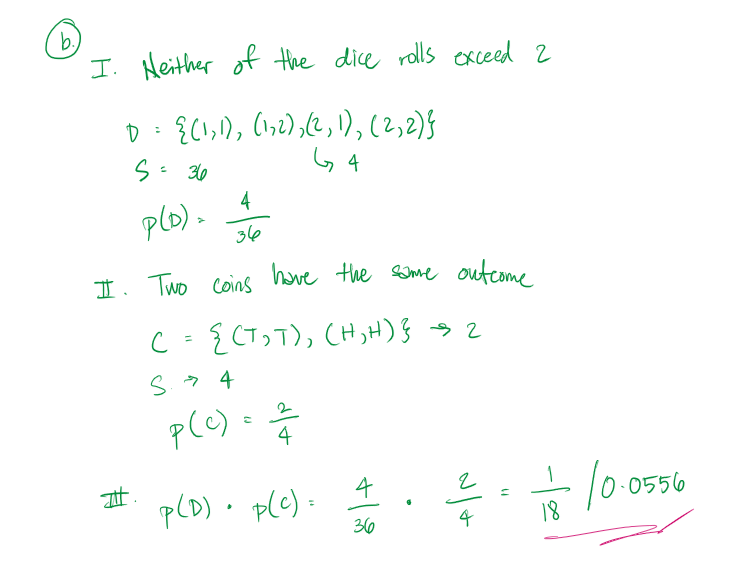 b.
I. Neither of the dice rolls exceed 2
D = {(1,1), (1,2), (2,1), (2,2)}
↳ 4
S = 36
P(D) = 4/36
II. Two coins have the same outcome
C = {(T,T), (H,H)} → 2
S → 4
P(C) = 2/4
III. P(D) · P(C) = 4/36 · 2/4 = 1/18 / 0.0556